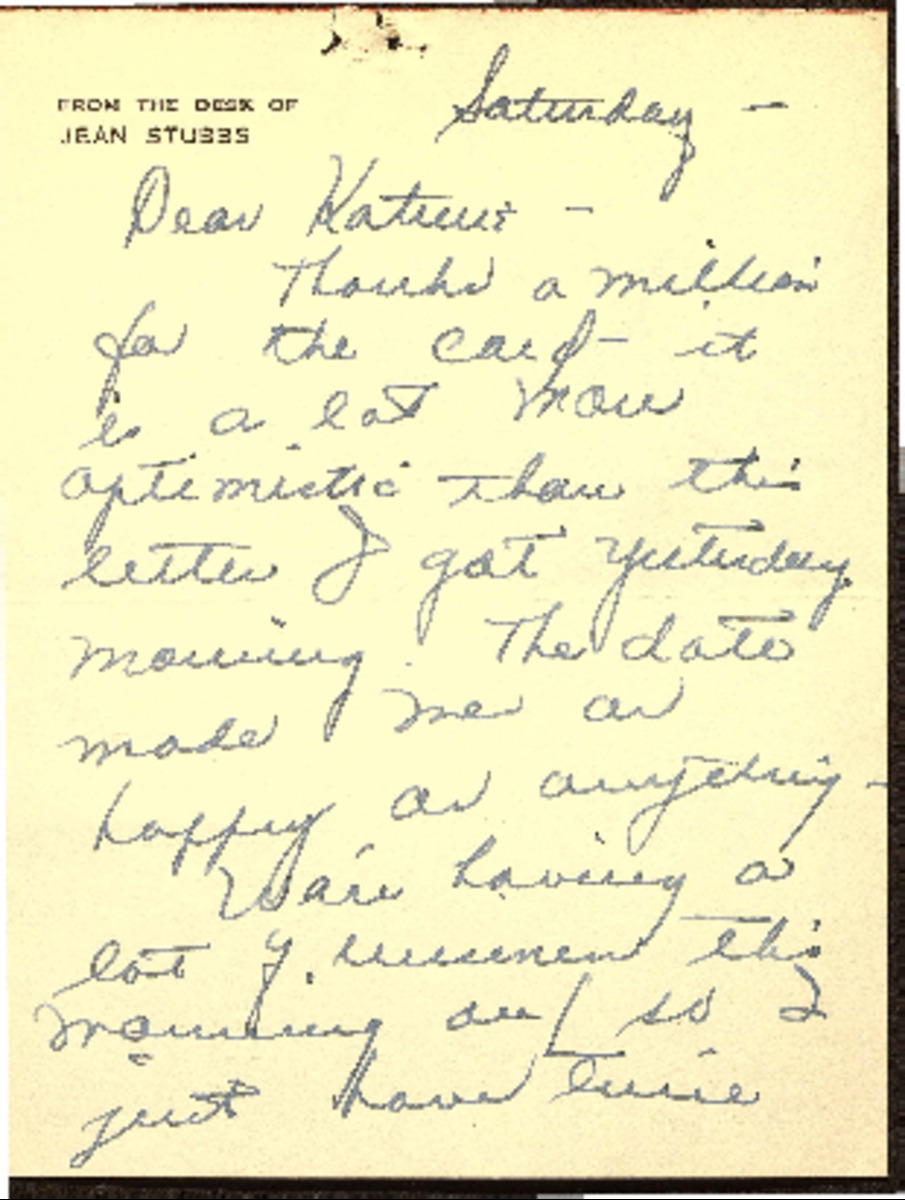 FROM THE DESK OF
JEAN STUBBS
Saturday -
Dear
Thanks a million
for the card - it
is a lot more
optimistic than this
letter I got yesterday
morning. The date
made me as
happy as anything -
We're having a
lot of this
morning and so I
just have time